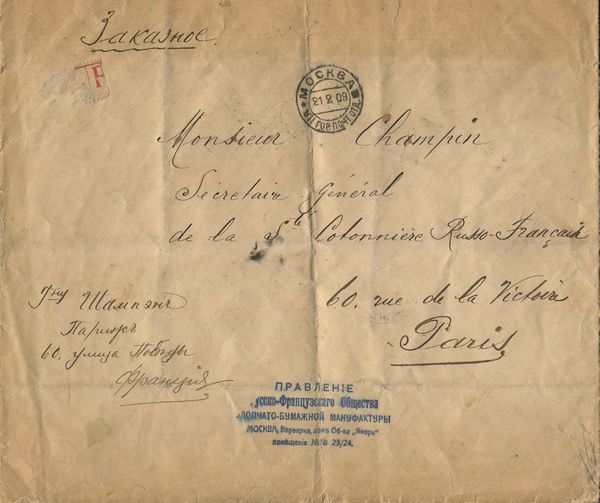 Заказное
МОСКВА
21 2 09
ГОР. ПОЧТ. ОТД.
Monsieur Champin
Sécretaire Général
de la Sté Cotonnière Russo-Française
60. rue de la Victoire
Paris
Гну Шампэнъ
Парижъ
60, улица Побѣды
Франція
ПРАВЛЕНІЕ
усско-Французскаго Общества
ЛОПЧАТО-БУМАЖНОЙ МАНУФАКТУРЫ
МОСКВА, Варварка, домъ Об-ва „Якорь"
помѣщеніе №№ 23/24.